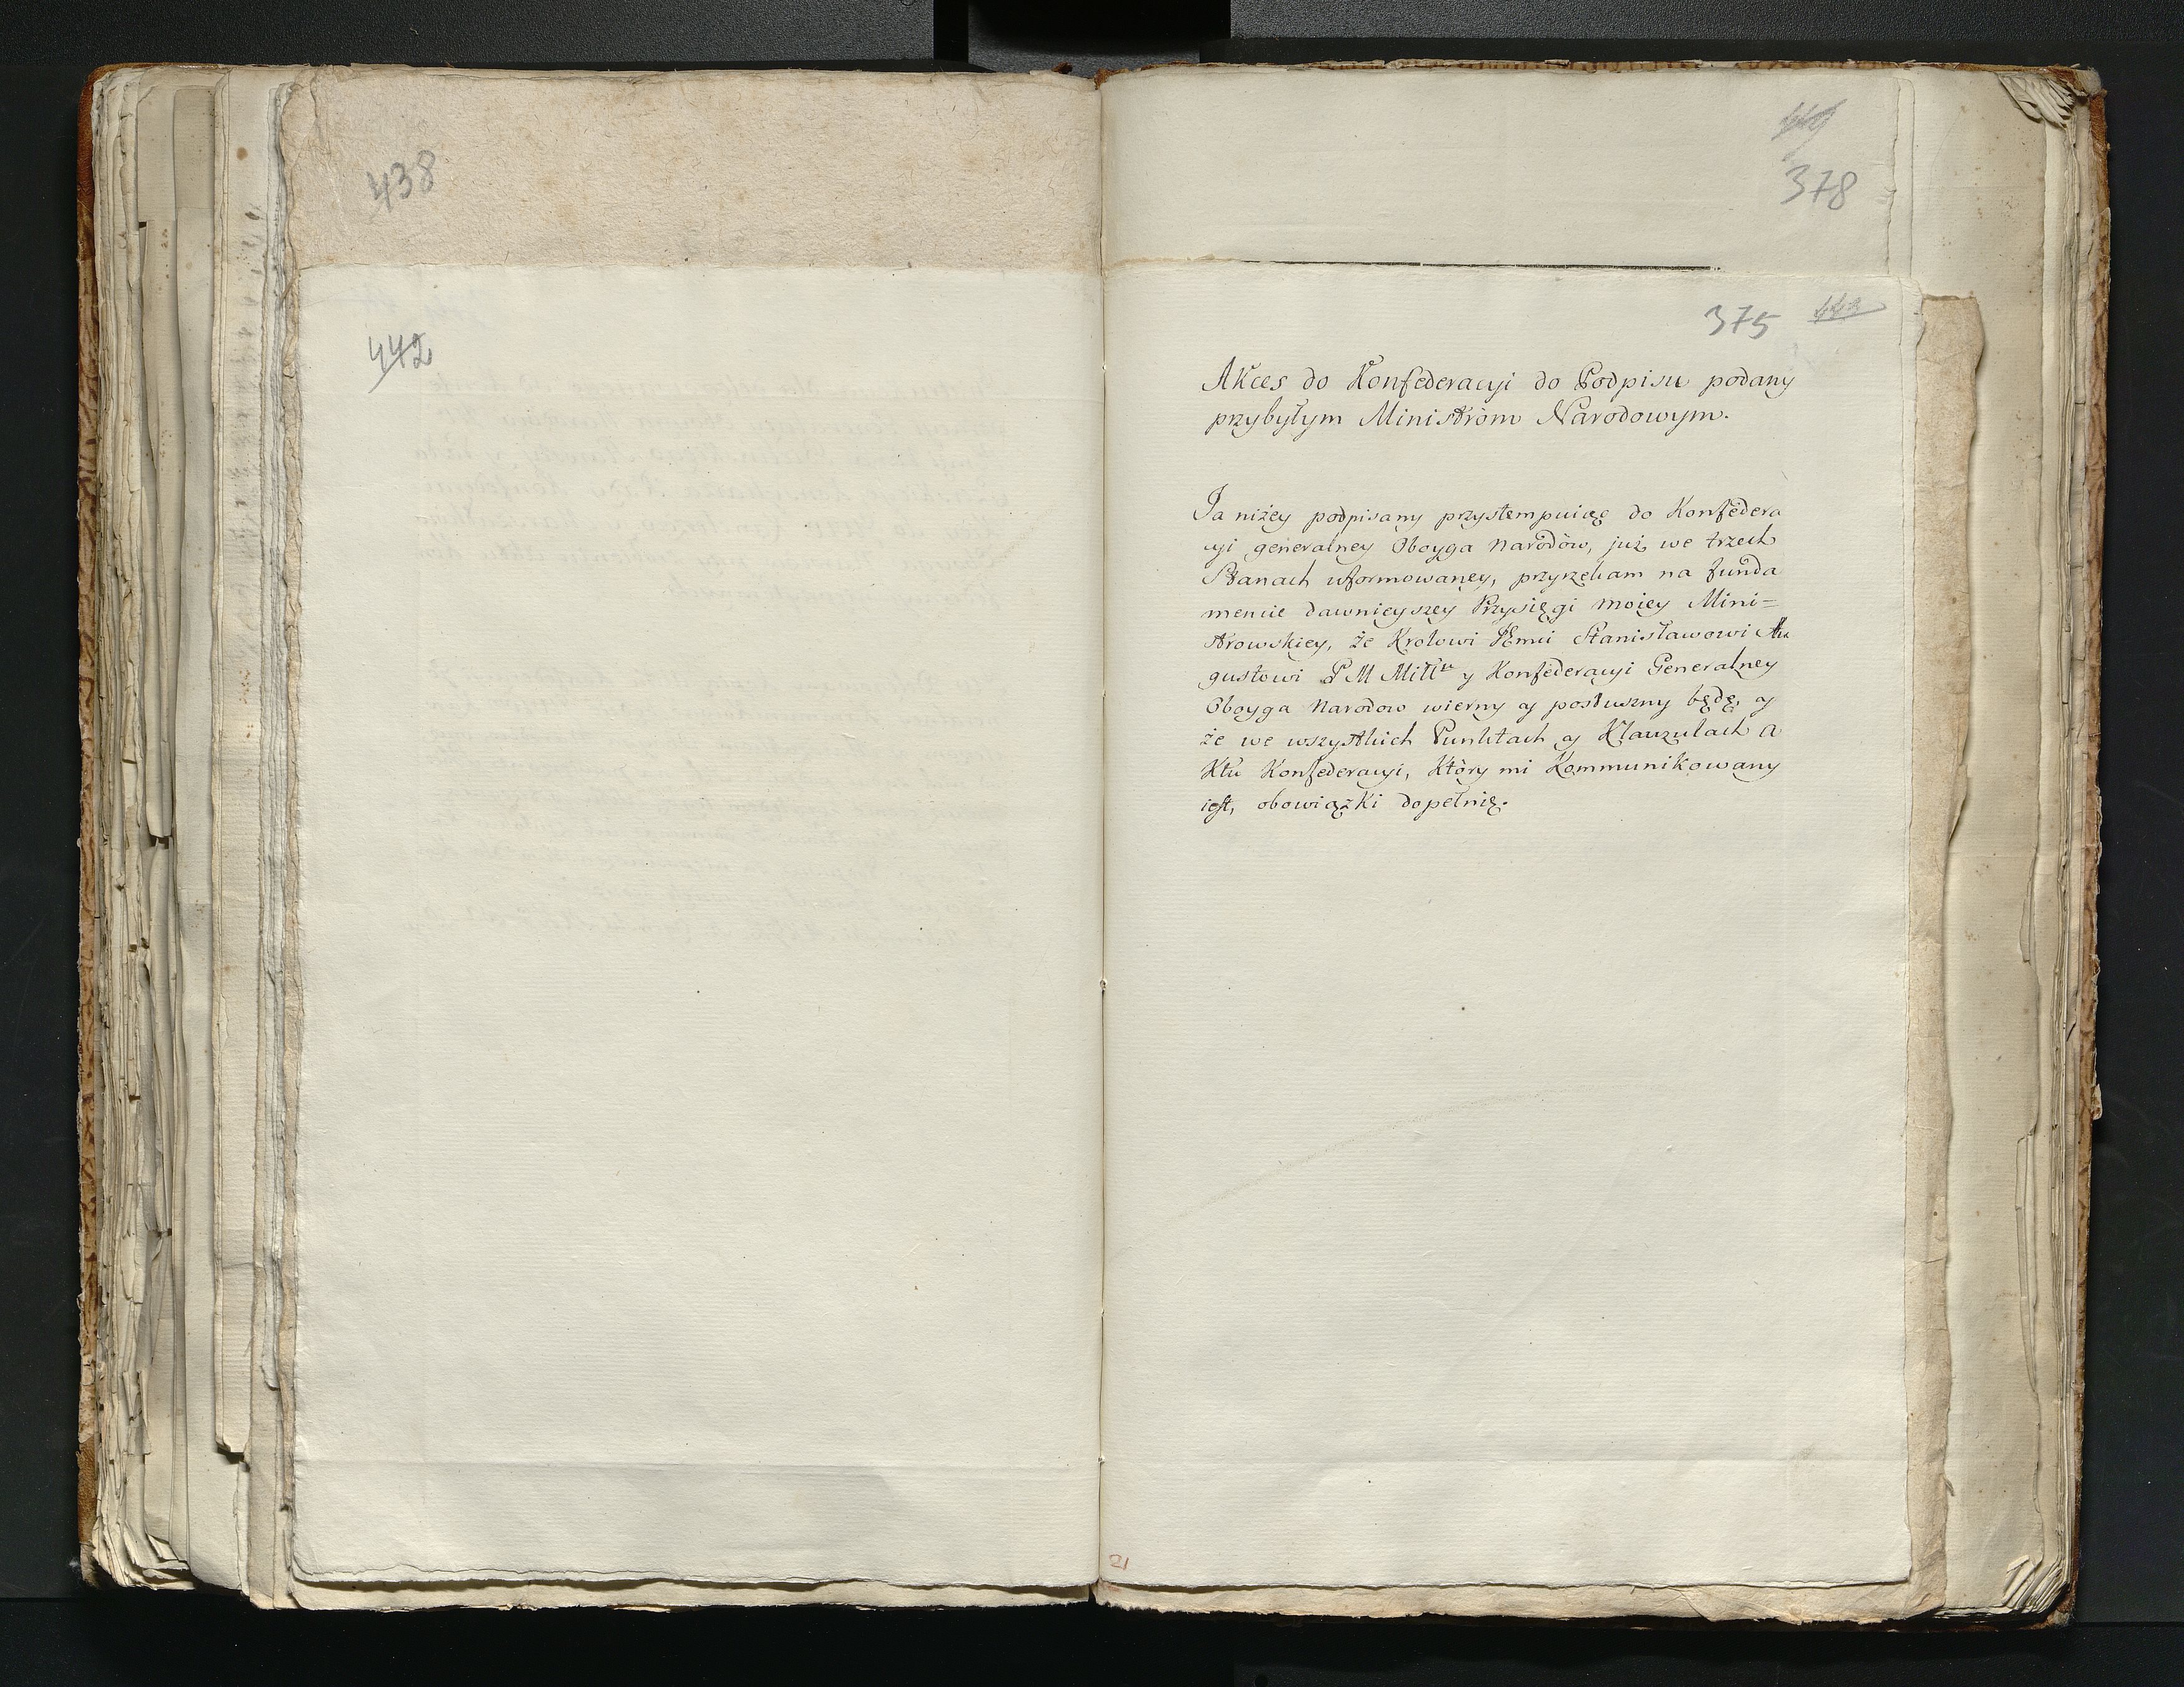 438
442
378
375 443
Akces do Konfederacyi do Podpisu podany
przybyłym Ministròm Narodowym.
Ja niżey podpisany przystempuięę do Konfedera
cyi generalney Oboyga Narodòw, już we trzech
Stanach uformowaney, przyrzekam na funda
mencie dawnieyszey Przysięgi moiey Mini=
strowskiey, że Krolowi JEmci Stanisławowi Au
gustowi P M Miłłu y Konfederacyi Generalney
Oboyga Narodow wierny y posłuszny będę, y
że we wszystkich Punktach y Klauzulach A
Ktu Konfederacyi, Ktòry mi Kommunikowany
iest, obowiązKi dopełnię.
21